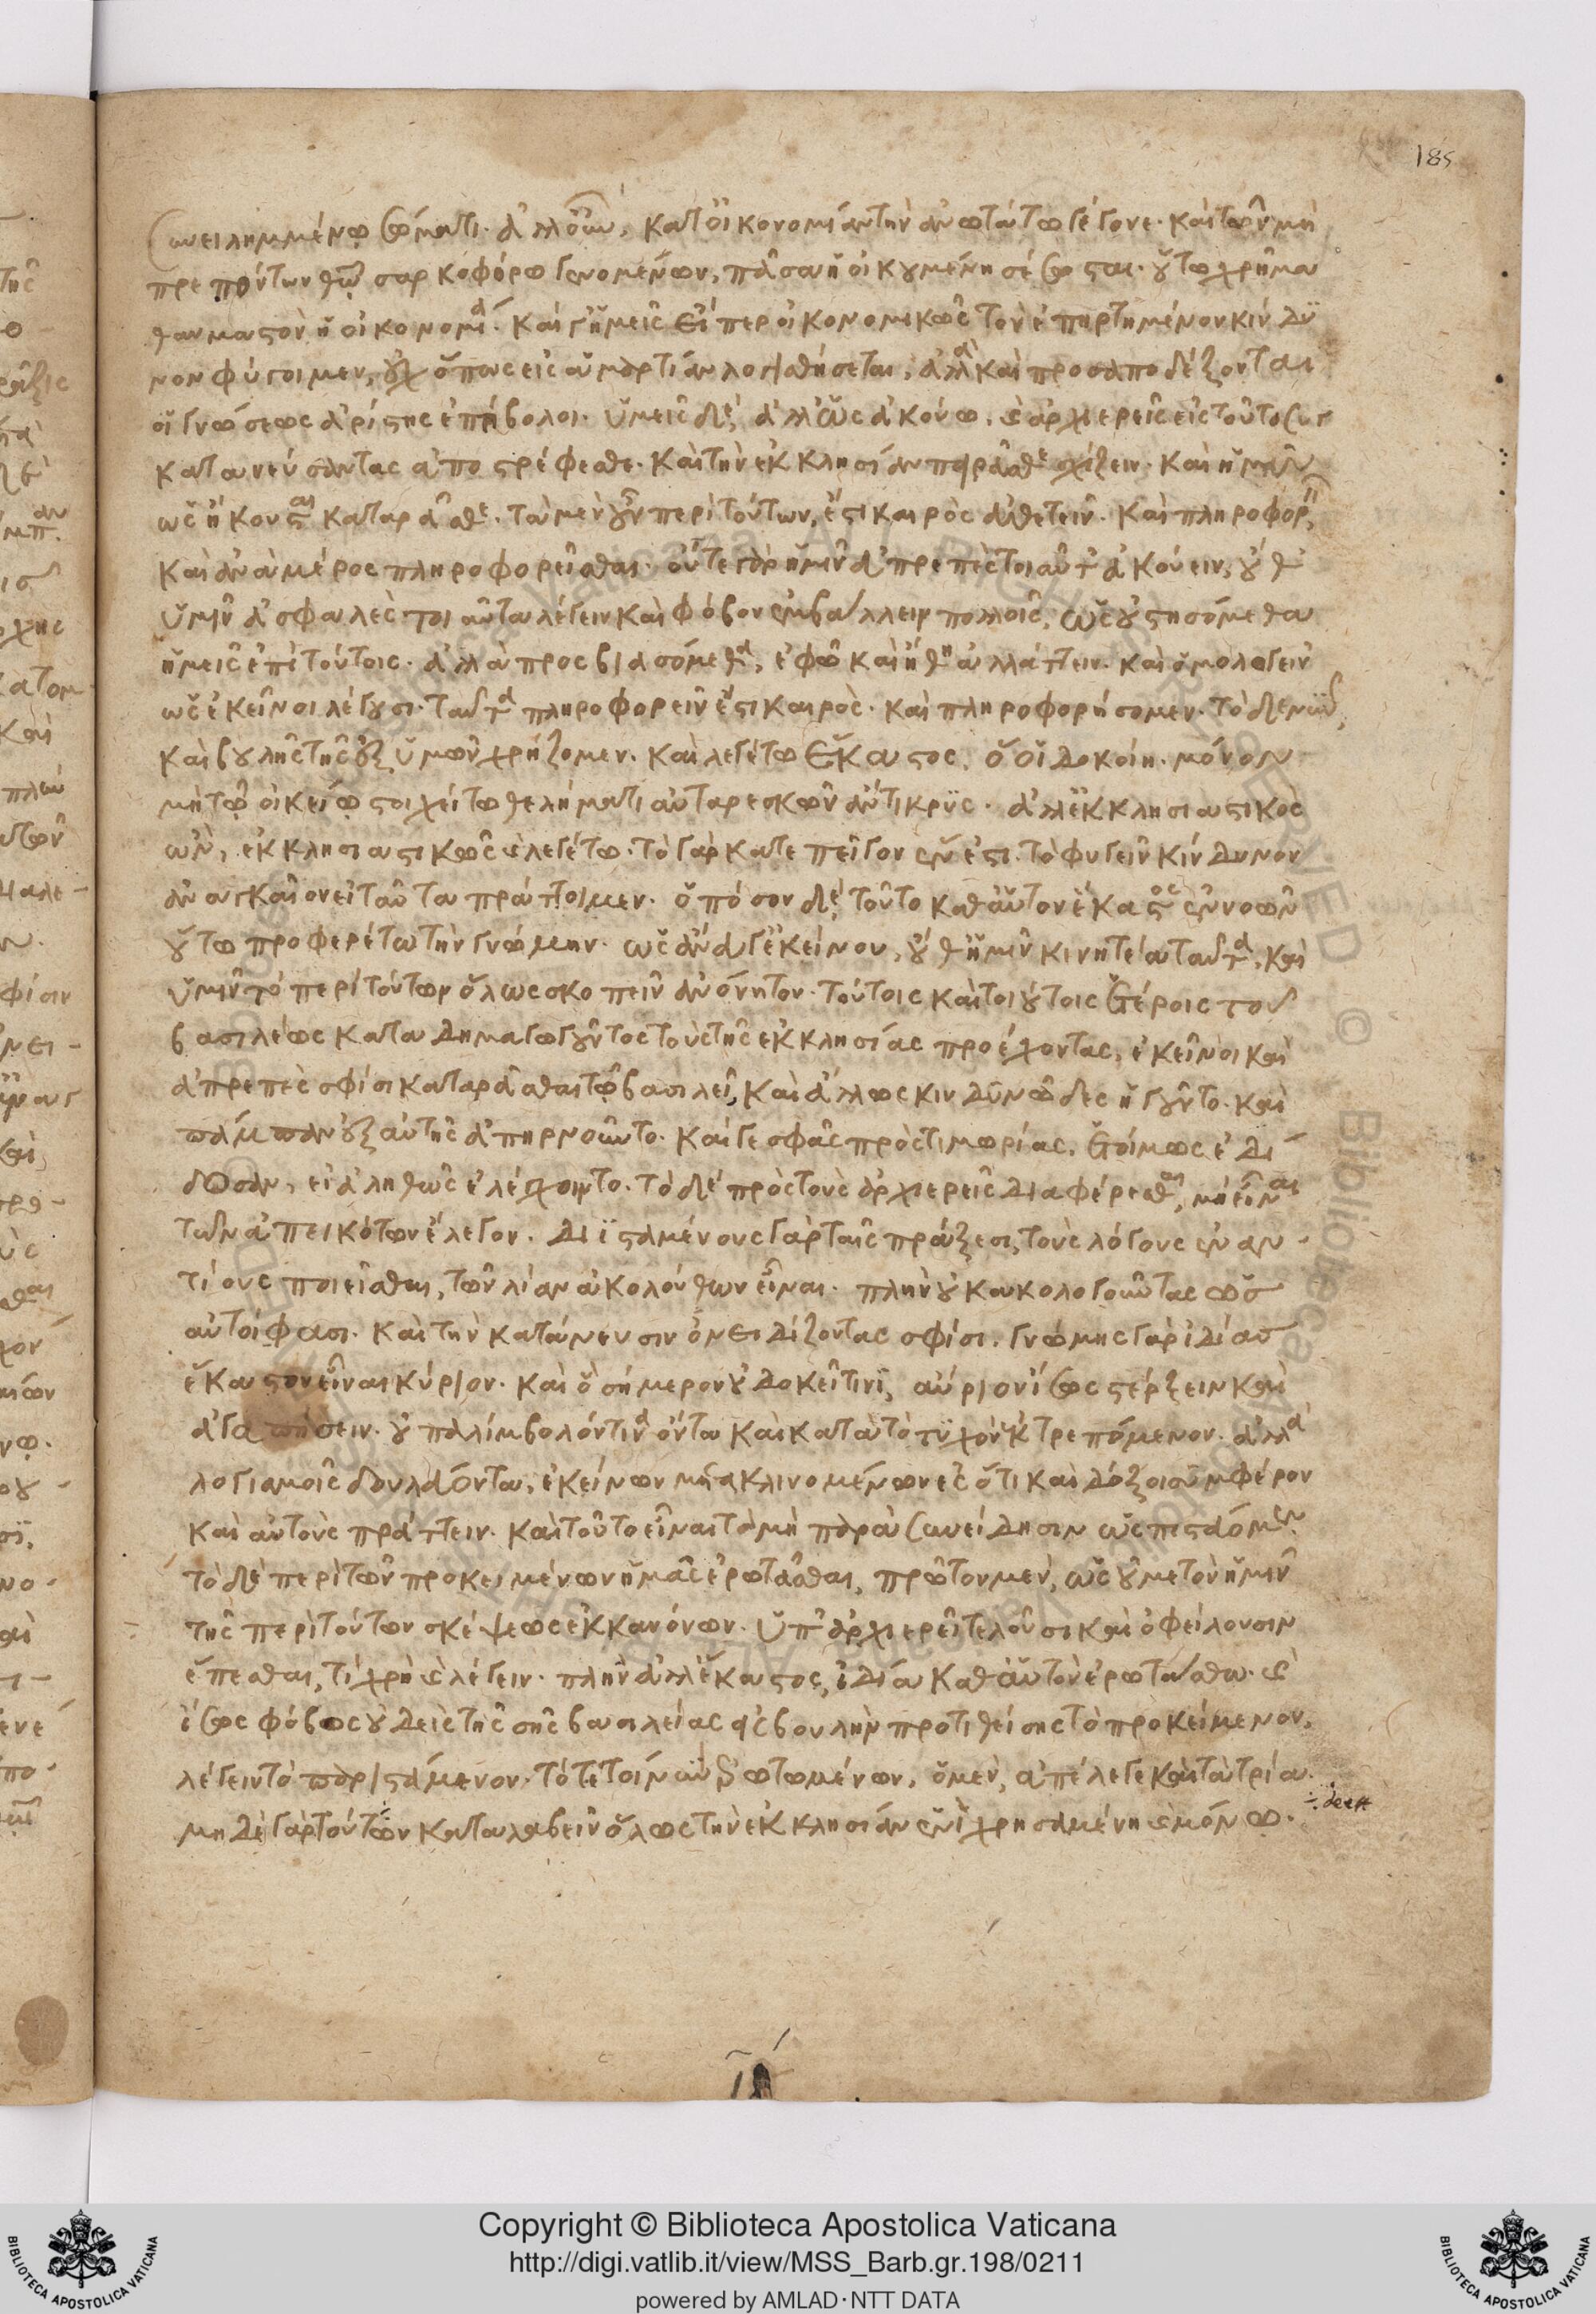 185
συνειλημμένῳ σώματι. ἀλλ οὖν, κατ οἰκονομίαν τὴν ἀνωτάτω γέγονε. καὶ τῶν μὴ
πρεπόντων θεῷ σαρκοφόρω γενομένων, πᾶσα ἡ οἰκουμένη σέσωσται. οὕτω χρῆμα
θαυμαστὸν ἡ οἰκονομία. καὶ γ ἡμεῖς εἴπερ οἰκονομικῶς τὸν ἐπηρτημένον κίνδυ
νον φύγοιμεν, οὐχ ὅπως εἰς ἁμαρτίαν λογισθήσεται, ἀλλὰ καὶ προσαποδέξονται
οἱ γνώσεως ἀρίστης ἐπήβολοι. ὑμεῖς δὲ, ἀλλ ὡς ἀκούω, ἀρχιερεῖς εἰς τοῦτο συγ
κατανεύσαντας ἀποστρέφεσθε. καὶ τὴν ἐκκλησίαν πειρᾶσθε σχίζειν. καὶ ἡμῶν
ὡς ἤκουσται καταρᾶσθε. τὰ μὲν οὖν περὶ τούτων, ἔστι καιρὸς ἀθετεῖν. καὶ πληροφορεῖν,
καὶ ἀνὰ μέρος πληροφορεῖσθαι. οὔτε γὰρ ἡμῖν ἀπρεπὲς τοιαῦτα ἀκούειν, οὔθ
ὑμῖν ἀσφαλὲς τοιαῦτα λέγειν καὶ φόβον ἐμβάλλειν πολλοῖς, ὡς οὐ στησόμεθα
ἡμεῖς ἐπὶ τούτοις. ἀλλὰ προσβιασόμεθα, ἐφῶ καὶ ἤθη ἀλλάττειν. καὶ ὁμολογεῖν
ὡς ἐκεῖνοι λέγουσι. ταῦτα πληροφορεῖν ἔστι καιρὸς. καὶ πληροφορήσομεν. τὸ δὲ νῦν,
καὶ βουλῆς τῆς ἐξ ὑμῶν χρήζομεν. καὶ λεγέτω ἕκαστος, ὅ οἱ δοκοίη. μόνον
μὴ τῷ οἰκείῳ στοιχείτω θελήματι αὐταρεσκῶν ἄντικρυς. ἀλλ ἐκκλησιαστικὸς
ὢν, ἐκκλησιαστικῶς λεγέτω. τὸ γὰρ κατεπεῖγον ἕν ἐστι. τὸ φυγεῖν κίνδυνον
ἀναγκαῖον εἰ ταῦτα πράττοιμεν. ὁπόσον δὲ, τοῦτο καθ αὑτὸν ἕκαστος ἐννοῶν
οὕτω προφερέτω τὴν γνώμην. ὡς ἄνευ γ ἐκείνου, οὔθ ἡμῖν κινητέα ταῦτα, καὶ
ὑμῖν τὸ περὶ τούτων ὅλως σκοπεῖν ἀνόνητον. τούτοις καὶ τοιούτοις ἑτέροις τοῦ
βασιλέως καταδημαγωγοῦντος τοὺς τῆς ἐκκλησίας προέχοντας, ἐκεῖνοι καὶ
ἀπρεπὲς σφίσι καταρᾶσθαι τῷ βασιλεῖ, καὶ ἄλλως κινδυνῶδες ἡγοῦντο. καὶ
πάμπαν ἐξ αὐτῆς ἀπηρνοῦντο. καί γε σφᾶς πρὸς τιμωρίας, ἑτοίμως ἐδί
δοσαν, εἰ ἀληθῶς ἐλέγχοιντο. τὸ δὲ πρὸς τοὺς ἀρχιερεῖς διαφέρεσθαι, μὴ εἶναι
τῶν ἀπεικότων ἔλεγον. διϊσταμένους γὰρ ταῖς πράξεσι, τοὺς λόγους ἐναν-
τίους ποιεῖσθαι, τῶν λίαν ἀκολούθων εἶναι. πλὴν οὐ κακολογοῦντας ὥς
αὐτοί φασι. καὶ τὴν κατάνευσιν ὀνειδίζοντας σφίσι. γνώμης γὰρ ἰδίας
ἕκαστον εἶναι κύριον. καὶ ὃ σήμερον οὐ δοκεῖ τινὶ, αὔριον ἴσως στέρξειν καὶ
ἀγαπήσειν. οὐ παλίμβολόν τινα ὄντα καὶ κατὰ τὸ τυχὸν ἐκτρεπόμενον. ἀλλὰ
λογισμοῖς δουλεύοντα, ἐκείνων μετακλινομένων ἐς ὅτι καὶ δόξοι συμφέρον
καὶ αὐτοὺς πράττειν. καὶ τοῦτο εἶναι τὸ μὴ παρὰ συνείδησιν ὡς πιστεύομεν
τὸ δὲ περὶ τῶν προκειμένων ἡμᾶς ἐρωτᾶσθαι, πρῶτον μὲν, ὡς οὐ μετὸν ἡμῖν
τῆς περὶ τούτων σκέψεως ἐκ κανόνων. ὑπ ἀρχιερεῖ τελοῦσι καὶ ὀφείλουσιν
ἕπεσθαι, τί χρὴ λέγειν. πλὴν ἀλλ ἕκαστος, ἰδία καθ αὑτὸν ἐρωτάσθω.
ἴσως φόβος οὐδεὶς τῆς σῆς βασιλείας εἰς βουλὴν προτιθείσης τὸ προκείμενον,
λέγειν τὸ παριστάμενον. τότε τοίνυν ἐρωτωμένων, ὁ μὲν, ἀπέλεγε καὶ τὰ τρία.
μηδὲ γὰρ τούτων καταλαβεῖν ὅλως τὴν ἐκκλησίαν ἑνὶ χρησαμένη μόνῳ.
deest
Copyright © Biblioteca Apostolica Vaticana
http://digi.vatlib.it/view/MSS_Barb.gr.198/0211
powered by AMLAD·NTT DATA
BIBLIOTECA APOSTOLICA VATICANA
BIBLIOTECA APOSTOLICA VATICANA